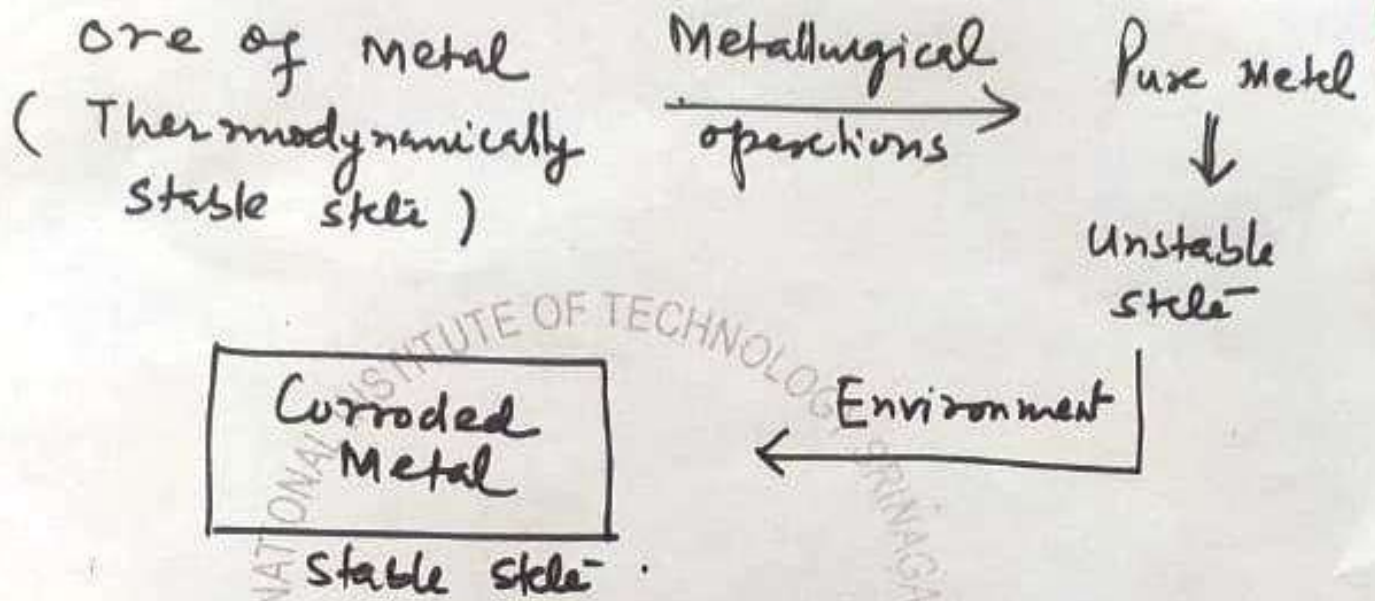 Ore of Metal
(Thermodynamically
Stable state)
Metallurgical
operations
Pure Metal
Unstable
state
Environment
Corroded
Metal
Stable state.
NATIONAL INSTITUTE OF TECHNOLOGY SRINAGA